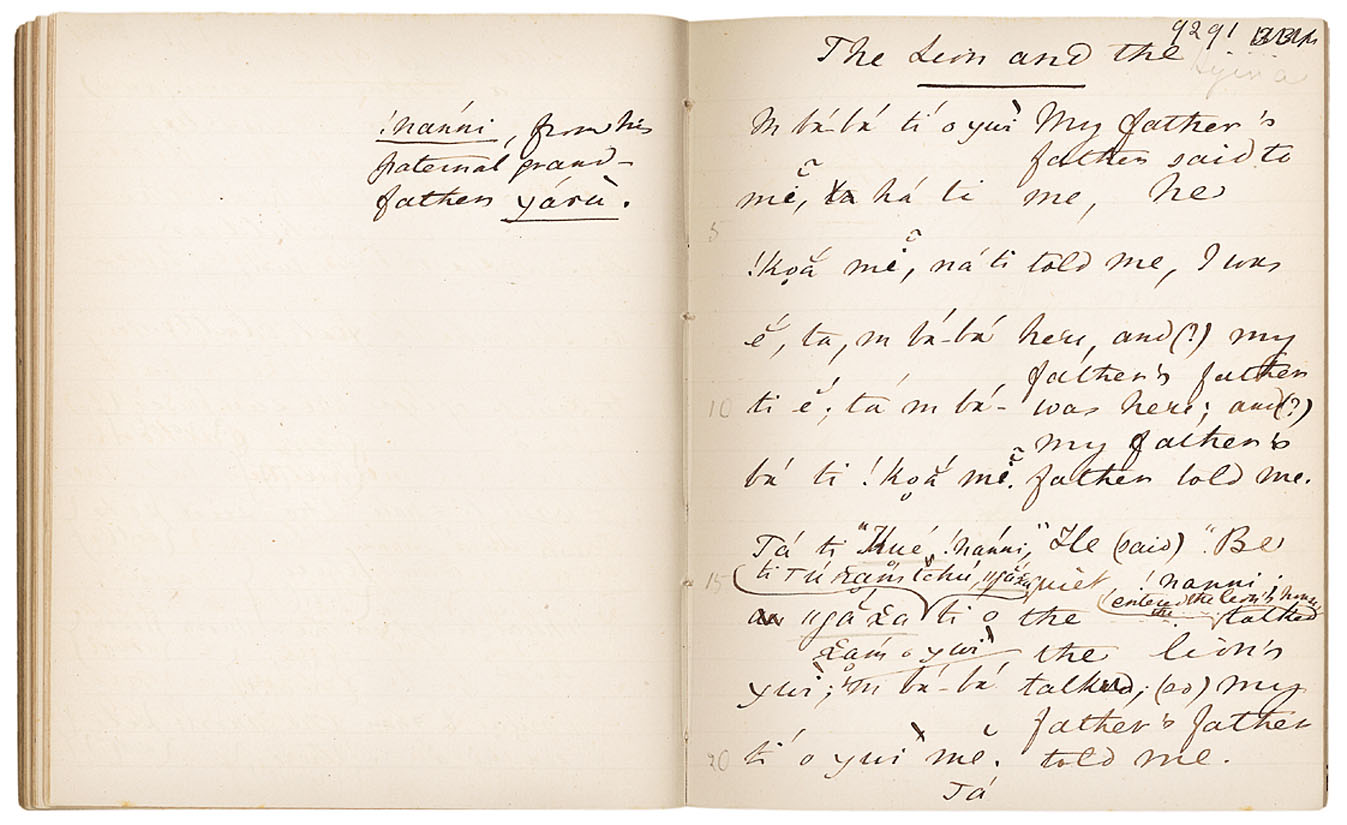 !nanni, from his
paternal grand-
father yárù.
9291
The Lion and the
Hyena
M bá-bá tí o ywì My father's
father said to
mĕ, há ti me, he
5
!koă mĕ, ná ti told me, I was
ĕ, ta, m bá-bá here, and(?) my
father's father
10 ti ĕ; tá m bá- was here; and(?)
my father's
bá ti !koă mĕ. father told me.
Tá ti "Kué, !nanni," He (said) "Be
15 ti quiet, !nanni;
(entered the lion's house,
ti o the talked
o ywì the lion's
ywì; m bá-bá talked; (as) my
father's father
20 tí o ywì mĕ. told me.
Tá